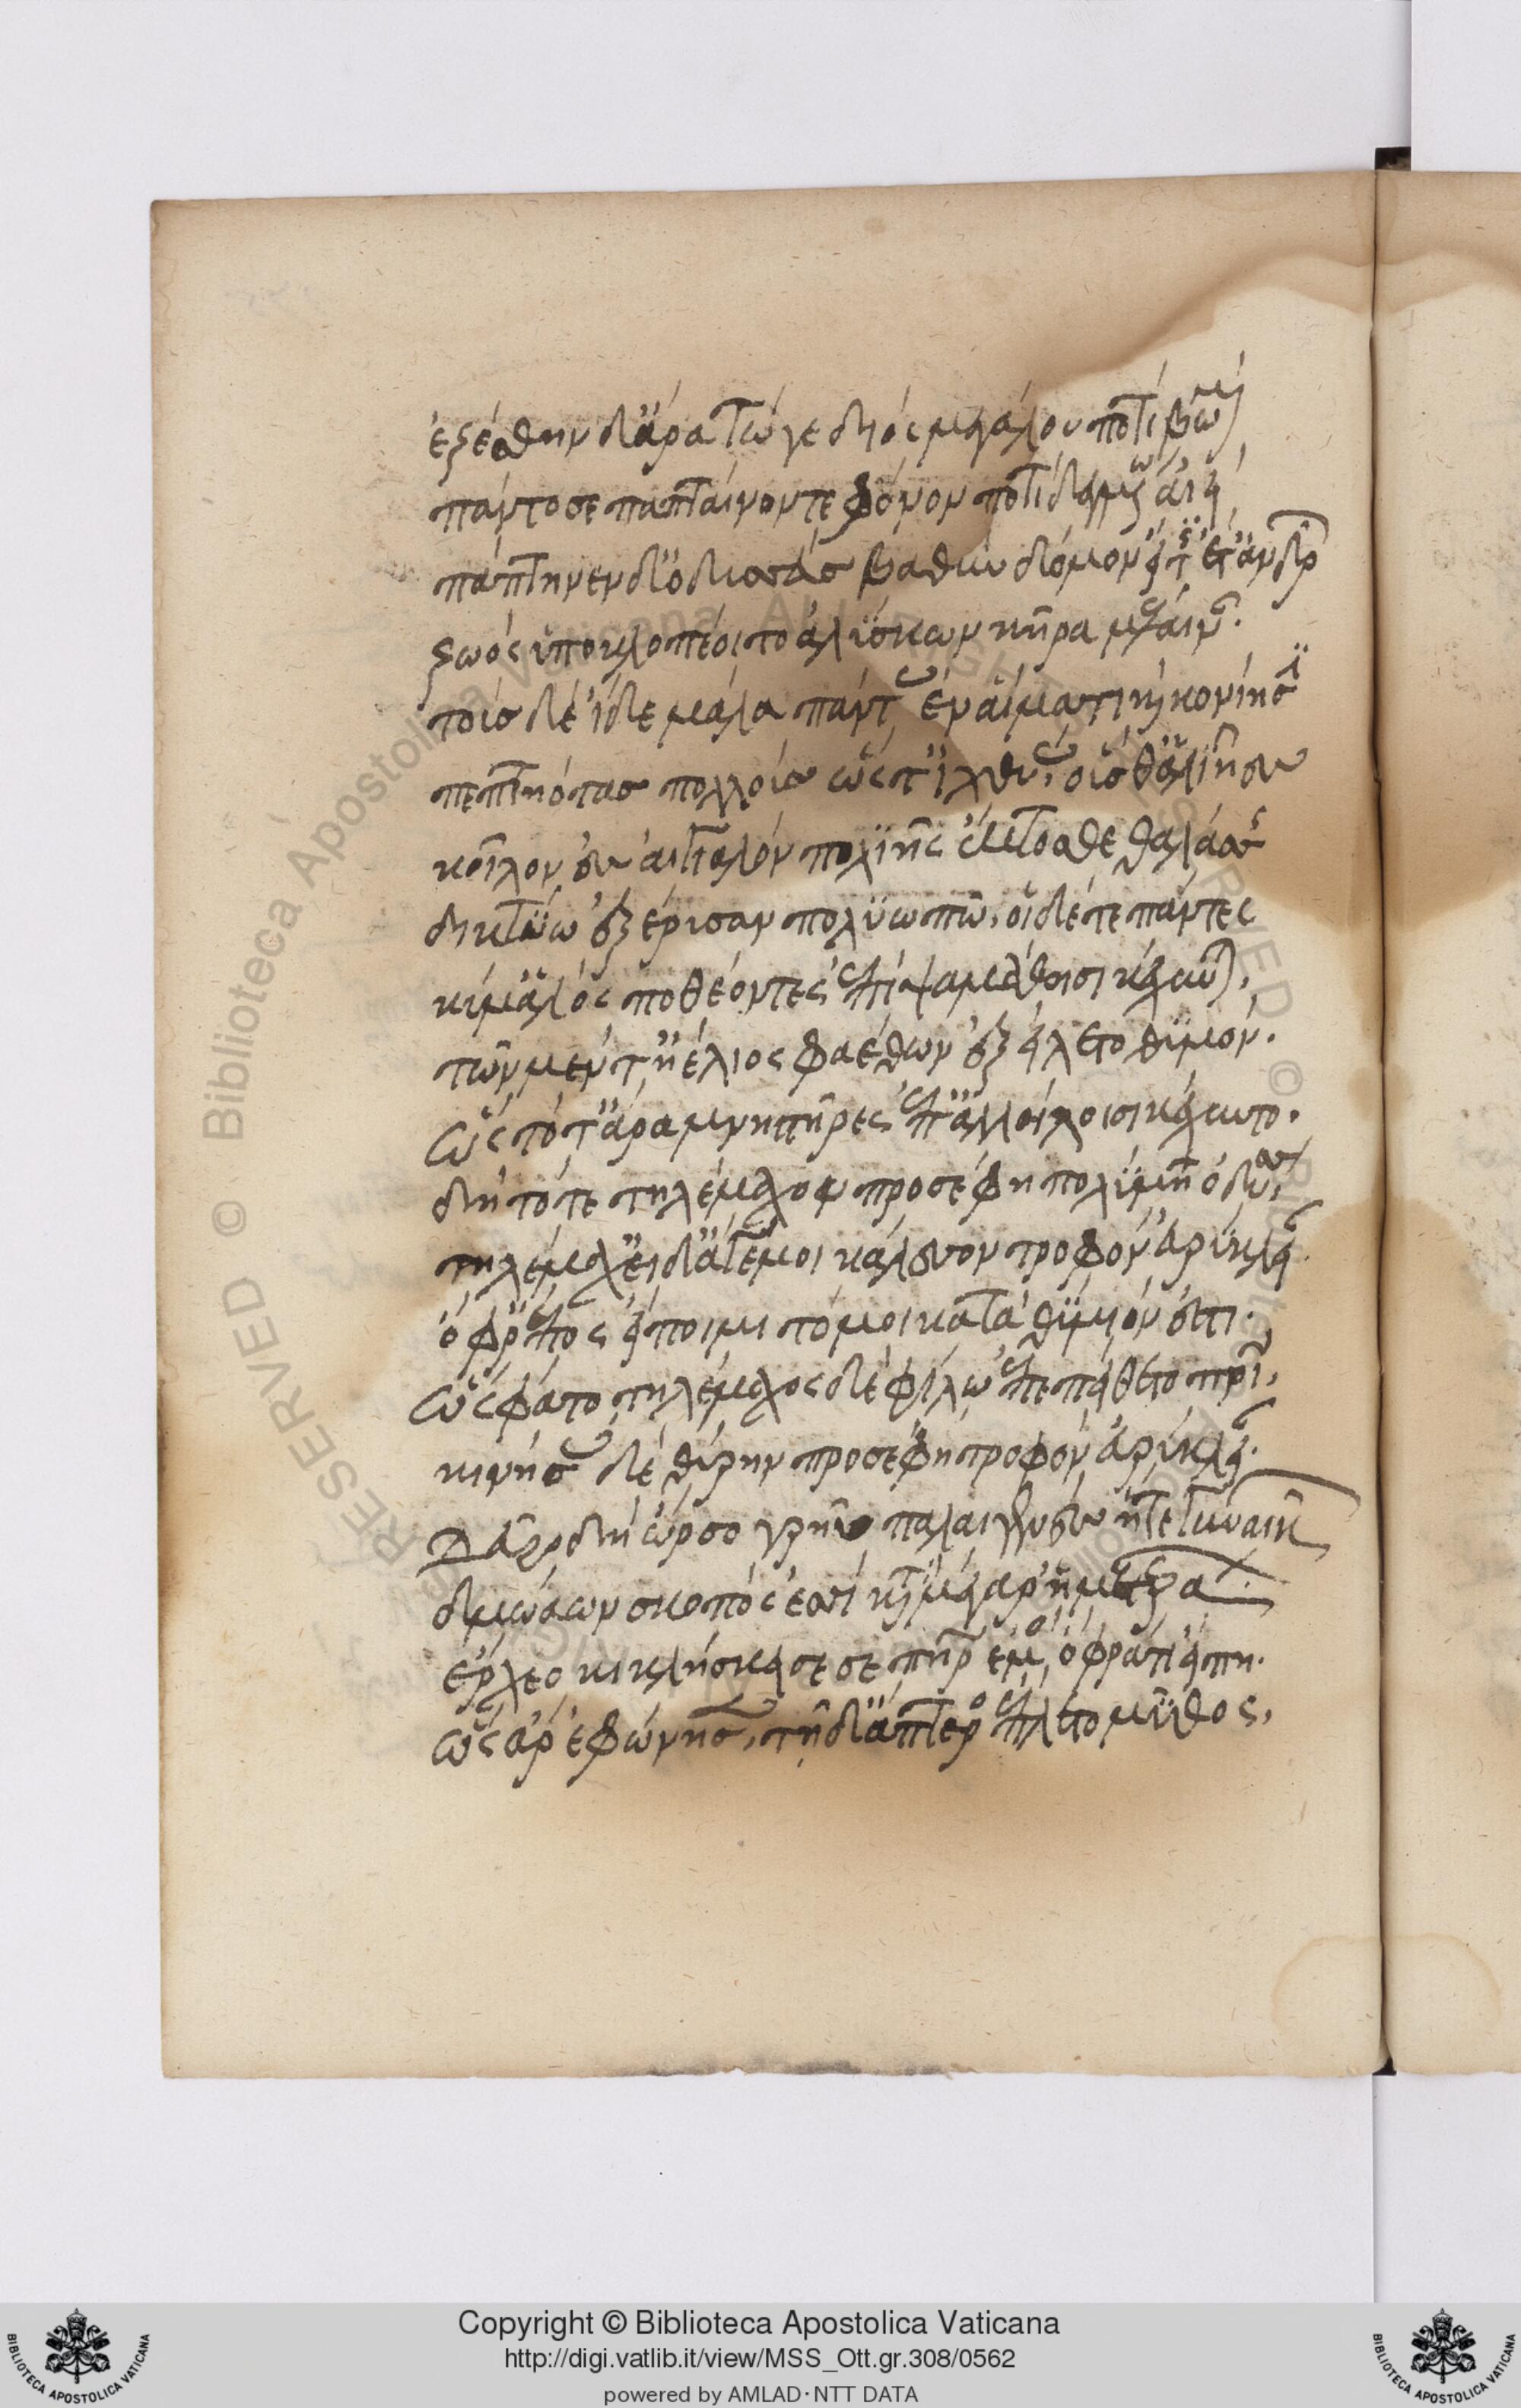 ἑζέσθην δ' ἄρα τώγε διὸς μεγάλου ποτὶ βωμὸν
πάντοσε παπταίνοντε φόνον ποτιδεγμένω αἰεί,
πάπτηνεν δ' ὀδυσεὺς καθ' ἑὸν δόμον εἴ τις ἔτ' ἀνδρῶν
ζωὸς ὑποκλοπέοιτο ἀλύσκων κῆρα μέλαιναν.
τοὺς δὲ ἴδε μάλα πάντας ἐν αἵματι καὶ κονίῃσι
πεπτηότας πολλοὺς ὥς τ' ἰχθύας, οὕς θ' ἁλιῆες
κοῖλον ἐς αἰγιαλὸν πολιῆς ἔκτοσθε θαλάσσης
δικτύω ἐξέρυσαν πολυωπῶ, οἱ δέ τε πάντες
κύμαθ' ἁλὸς ποθέοντες ἐπὶ ψαμάθοισι κέχυνται,
τῶν μέν τ' ἠέλιος φαέθων ἐξείλετο θυμόν.
ὣς τότ' ἄρα μνηστῆρες ἐπ' ἀλλήλοισι κέχυντο.
δὴ τότε τηλέμαχον προσέφη πολύμητις ὀδυσσεύς,
τηλέμαχ' εἰ δ' ἄγε μοι κάλεσον τροφὸν εὐρύκλειαν
ὄφρα ἔπος εἴποιμι τό μοι καταθύμιόν ἐστι.
ὣς φάτο τηλέμαχος δὲ φίλω ἐπεπείθετο πατρί,
κινήσας δὲ θύρην προσέφη τροφὸν εὐρύκλειαν.
δεῦρο δὴ ὄρσο γρηῢ παλαιγενὲς ἥτε γυναικῶν
δμωάων σκοπός ἐσσι κατὰ μέγαρ' ἡμετεράων.
ἔρχεο κικλήσκει σε πατὴρ ἐμός, ὄφρα τι εἴπη.
ὣς ἄρ' ἐφώνησε, τῇ δ' ἄπτερος ἔπλετο μῦθος,
Copyright © Biblioteca Apostolica Vaticana
http://digi.vatlib.it/view/MSS_Ott.gr.308/0562
powered by AMLAD·NTT DATA